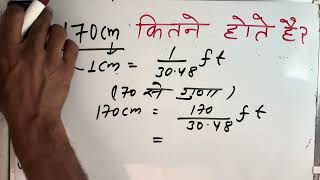 170cm कितने होते हैं?
1cm = 1/30.48 ft
(170 से गुणा)
170cm = 170/30.48 ft
=